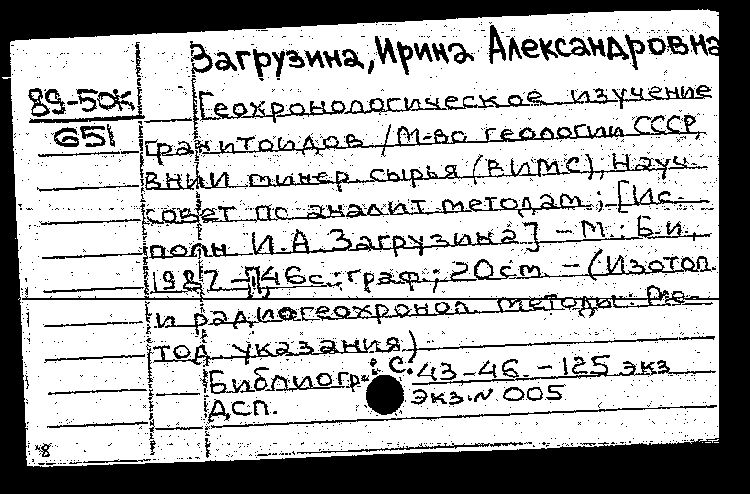 Загрузина, Ирина Александровна
89-50к
651
Геохронологическое изучение
гранитоидов / М-во геологии СССР,
ВНИИ минер. сырья (ВИМС), Науч.
совет по аналит методам; [Ис-
полн И.А. Загрузина] - М.: Б.и.,
1987 - 46 с.: граф.; 20 см. - (Изотоп.
и радиогеохронол. методы: Ме-
тод указания)
Библиогр.: с. 43-46. - 125 экз
экз. N 005
ДСП.